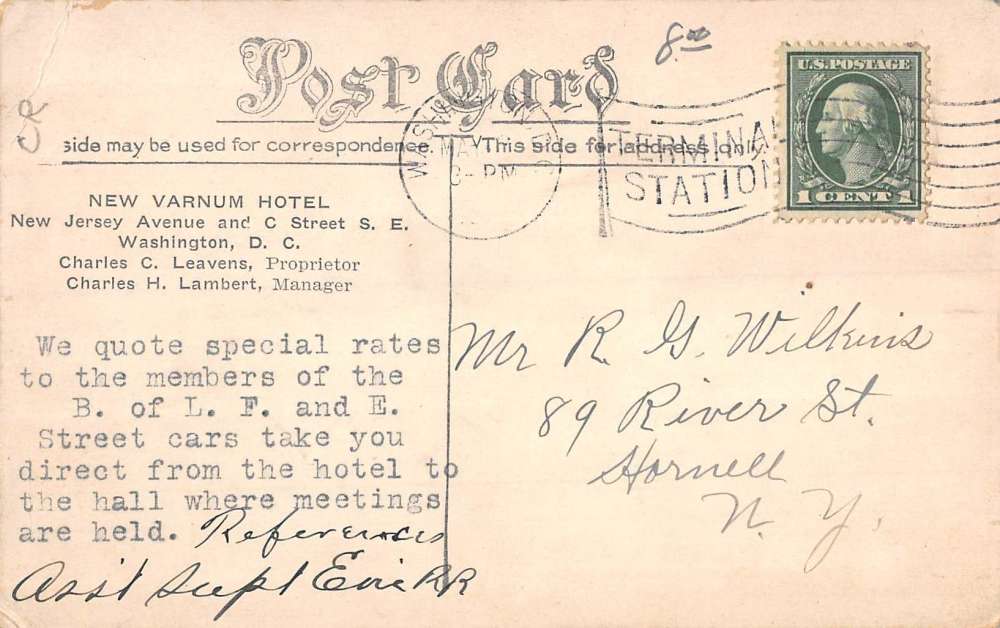 8.00
Post Card
CR
side may be used for correspondence. This side for address only.
MAY
PM
TERMINAL
STATION
U.S. POSTAGE
1 CENT 1
NEW VARNUM HOTEL
New Jersey Avenue and C Street S. E.
Washington, D. C.
Charles C. Leavens, Proprietor
Charles H. Lambert, Manager
We quote special rates
to the members of the
B. of L. F. and E.
Street cars take you
direct from the hotel to
the hall where meetings
are held. References
Ass't Supt Erie RR
Mr R. G. Wilkins
89 River St.
Hornell
N. Y.